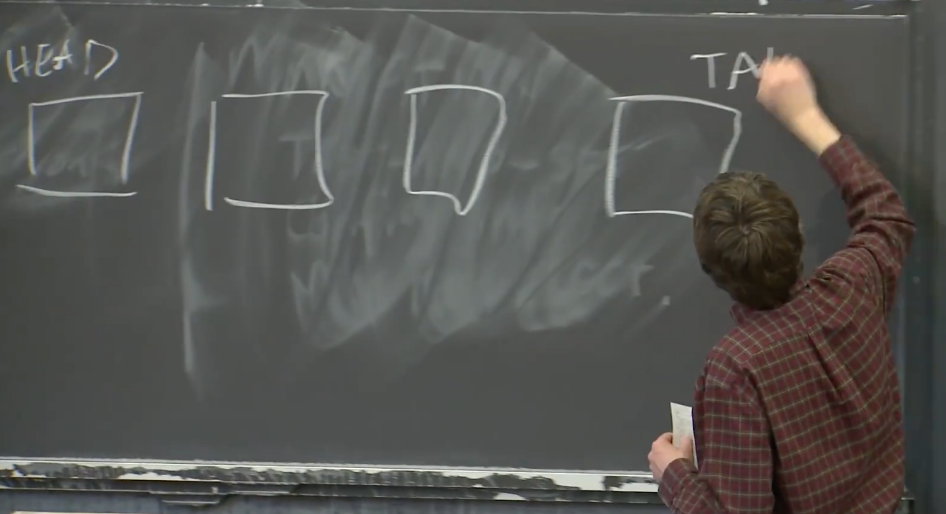 HEAD
TAI